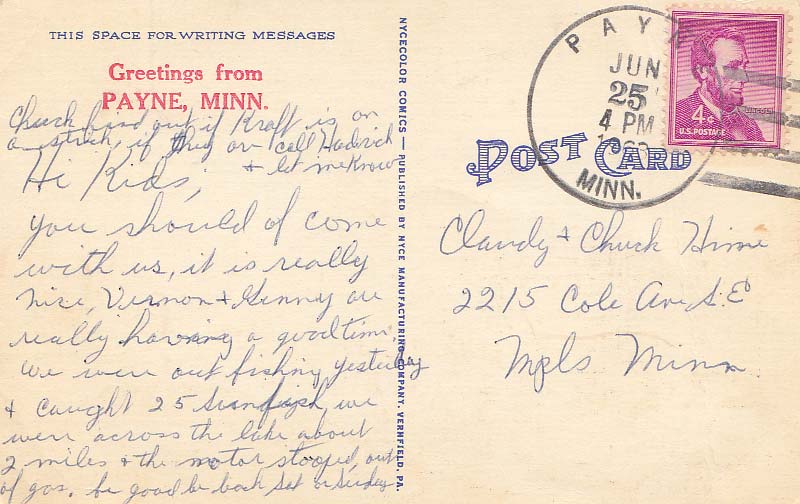 THIS SPACE FOR WRITING MESSAGES
Greetings from
PAYNE, MINN.
Chuck find out if Kraft is on
a strick, if they are call
& let me know
Hi Kids,
You should of come
with us, it is really
nise, Vernon & Ginny are
really having a good time.
We were out fishing yesterday
& caught 25 Sunfish, we
were across the lake about
2 miles & the motor stooped, out
of gas. be good be back Sat or Sunday
NYCECOLOR COMICS — PUBLISHED BY NYCE MANUFACTURING COMPANY, VERNFIELD, PA.
POST CARD
PAYN
JUN
25
4 PM
MINN.
LINCOLN
4¢
U.S. POSTAGE
Claudy & Chuck Hime
2215 Cole Ave S.E
Mpls Minn.